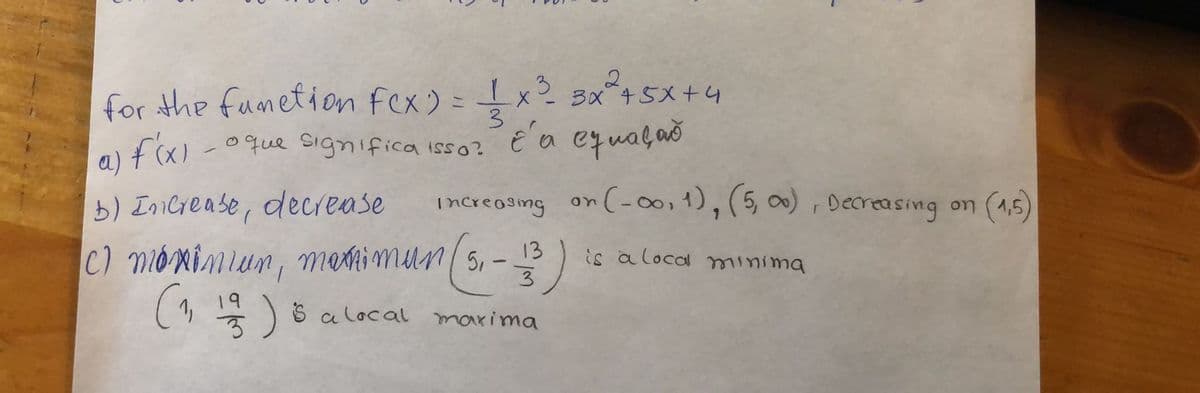 for the function f(x) = 1/3 x³ - 3x² + 5x + 4
a) f'(x) - o que significa isso? É a equação
b) Increase, decrease increasing on (-∞, 1), (5, ∞), Decreasing on (1,5)
c) máximiun, menimun (5, - 13/3) is a local minima
(1, 19/3) is a local maxima